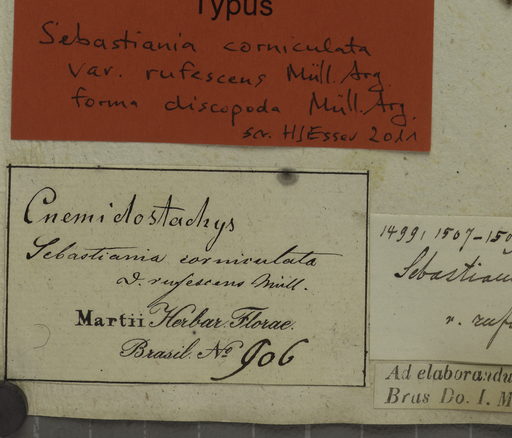 Typus
Sebastiania corniculata
var. rufescens Müll. Arg.
forma discopoda Müll. Arg.
scr. HJEsser 2011
Cnemidostachys
Sebastiania corniculata
v. rufescens Müll.
Martii Herbar. Florae.
Brasil. No 906
1499; 1507-150
Sebastiani
v. ruf
Ad elaborandu
Bras Do. I. M